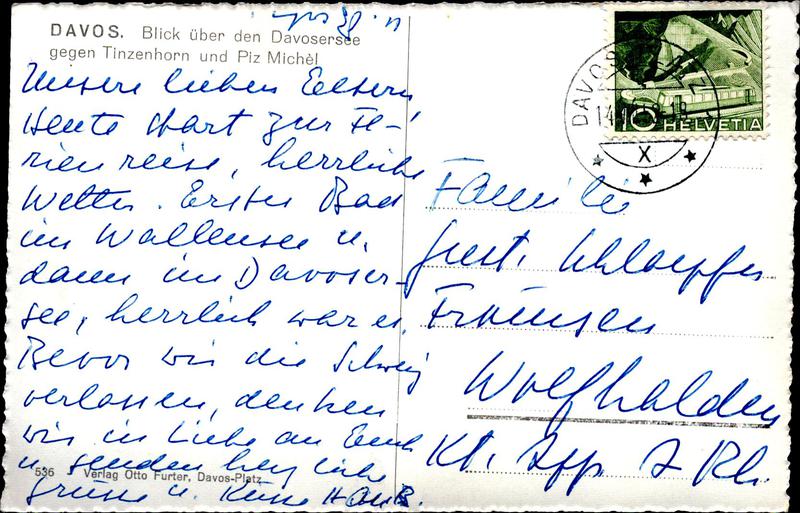 DAVOS. Blick über den Davosersee
gegen Tinzenhorn und Piz Michèl
Unsere lieben Eltern
Heute Start zur Fe-
rienreise, herrliche
Wetter. Erster Bad
im Wallensee u.
dann im Davoser-
see, herrlich war es.
Bevor wir die Schweiz
verlassen, denken
wir in Liebe an Euch
u. senden herzliche
Grüsse u. Küsse
536 Verlag Otto Furter, Davos-Platz
DAVOS
10 HELVETIA
X
Familie
Gust. Schlaepfer
Wolfhalden
Kt. App. A. Rh.